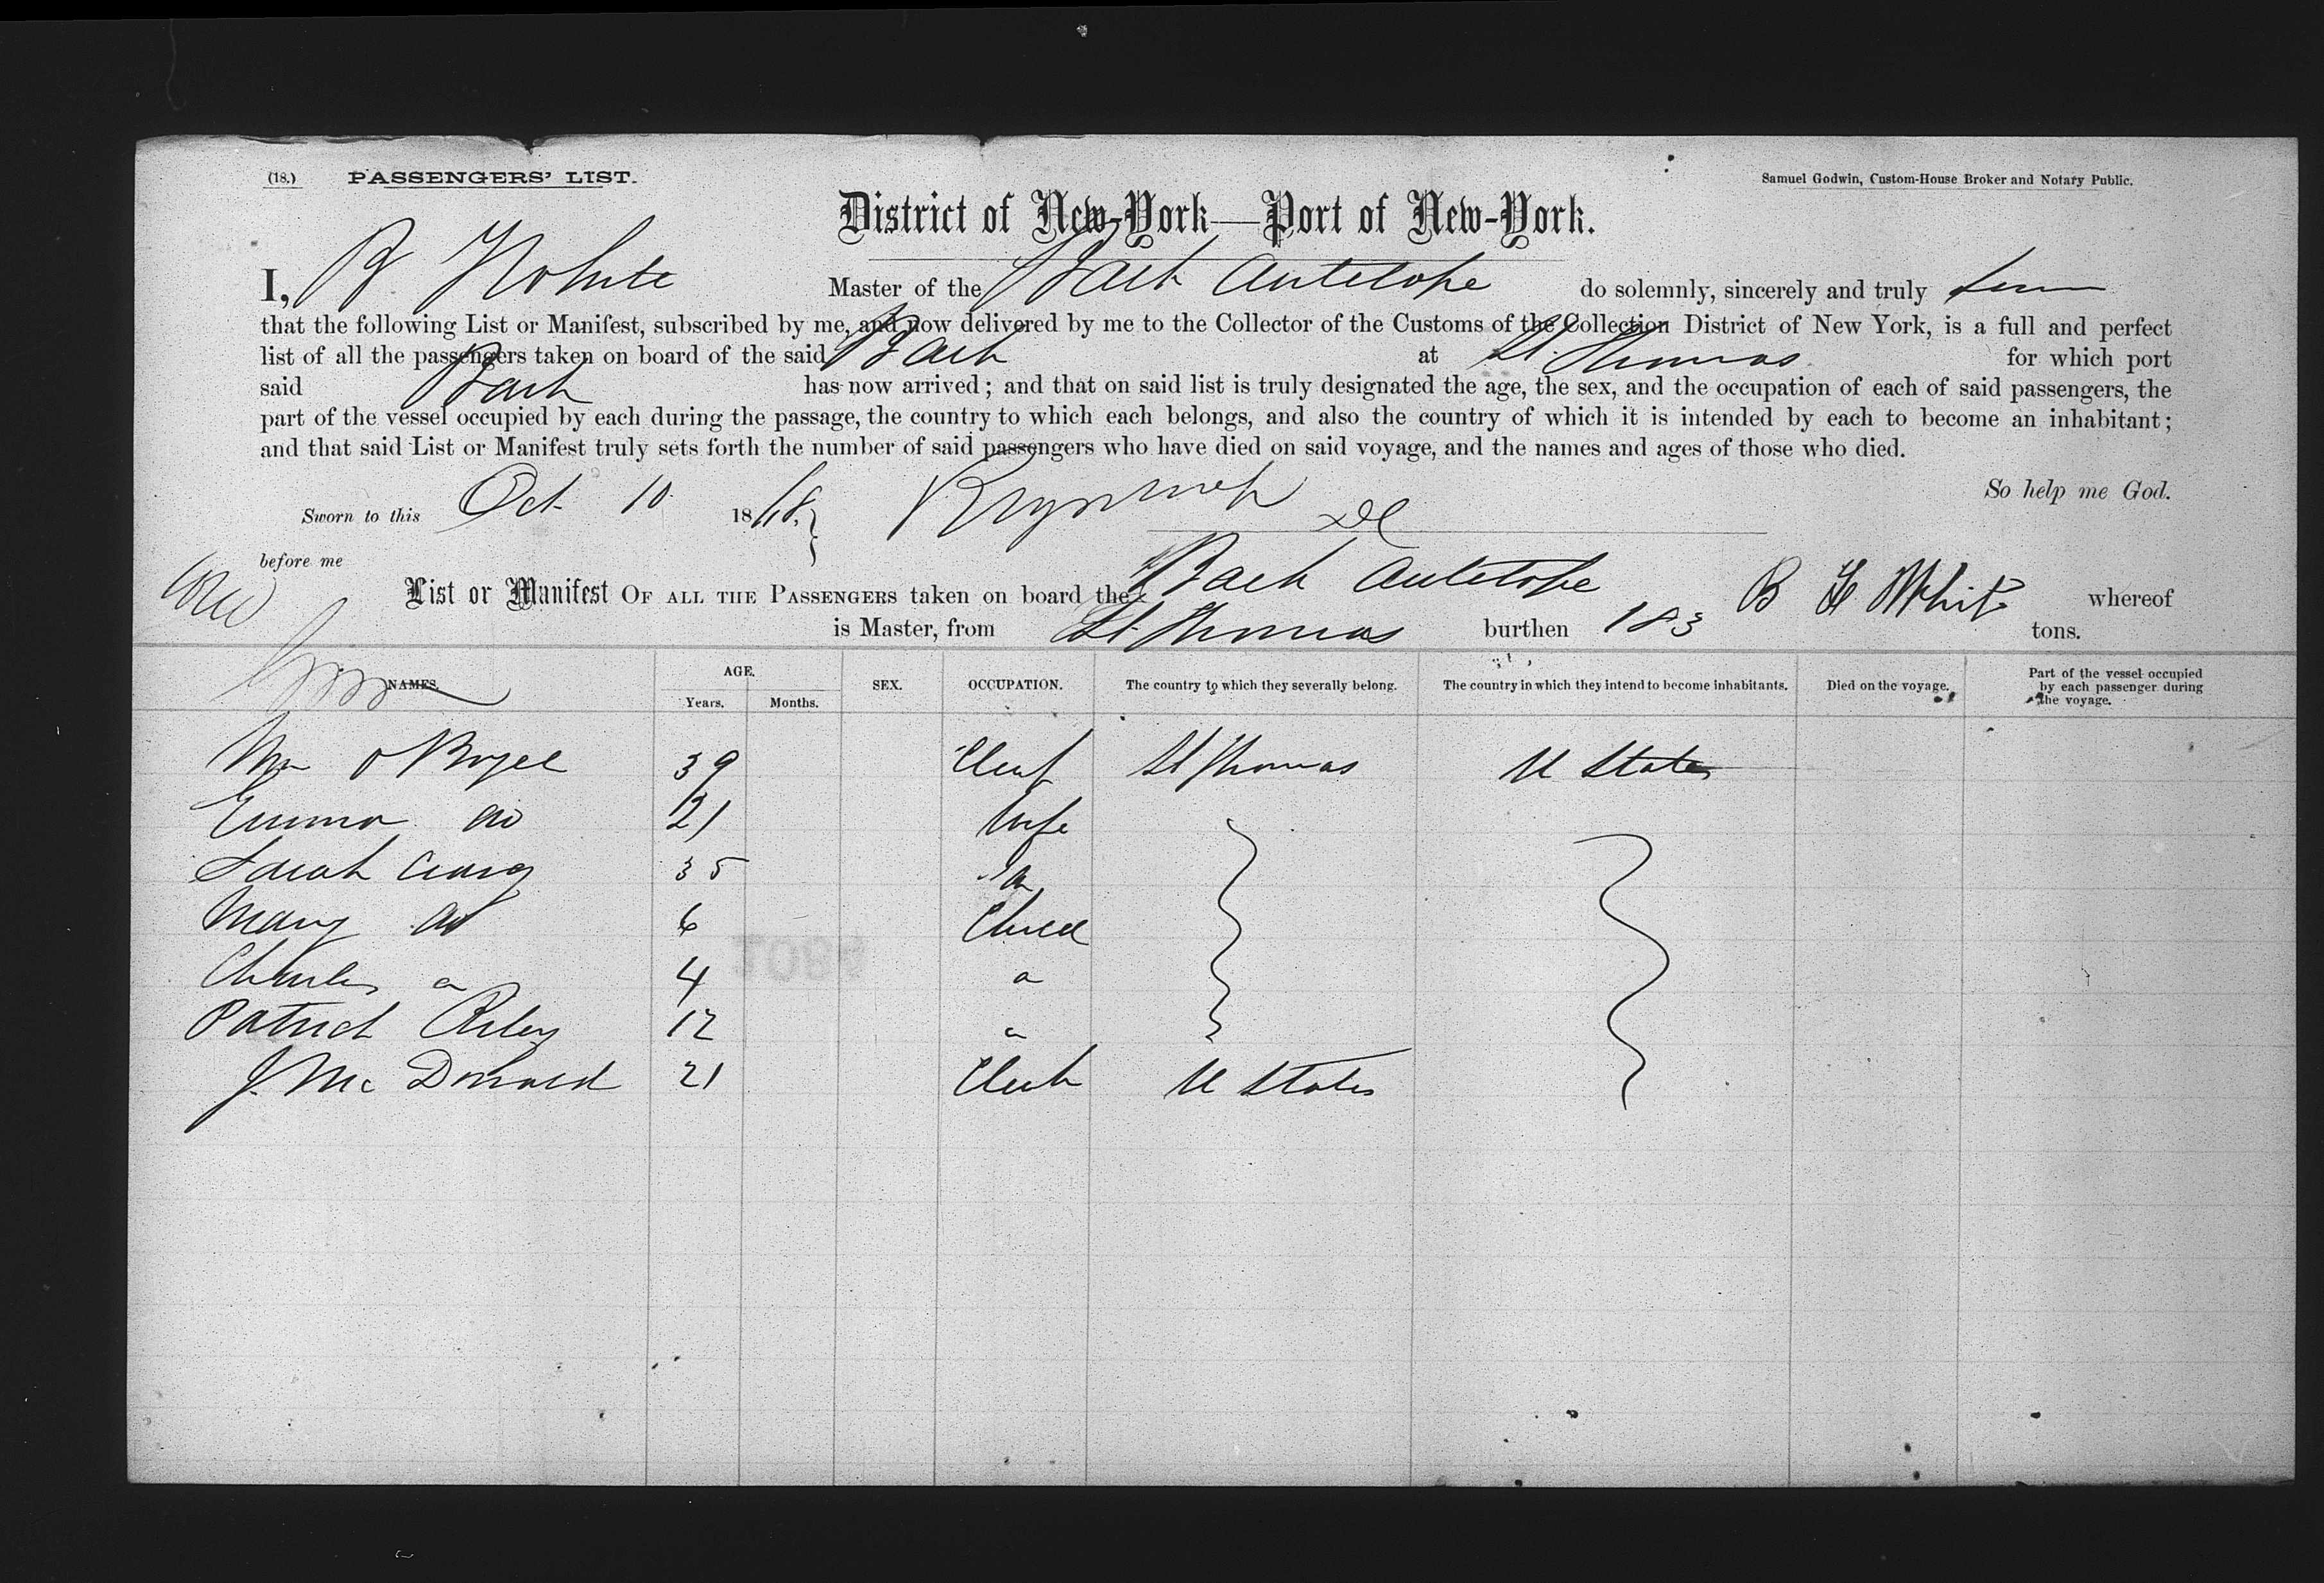 (18.) PASSENGERS' LIST.
Samuel Godwin, Custom-House Broker and Notary Public.
District of New-York—Port of New-York.
I, B White Master of the Bark Antelope do solemnly, sincerely and truly
that the following List or Manifest, subscribed by me, and now delivered by me to the Collector of the Customs of the Collection District of New York, is a full and perfect
list of all the passengers taken on board of the said Bark at St. Thomas for which port
said Bark has now arrived; and that on said list is truly designated the age, the sex, and the occupation of each of said passengers, the
part of the vessel occupied by each during the passage, the country to which each belongs, and also the country of which it is intended by each to become an inhabitant;
and that said List or Manifest truly sets forth the number of said passengers who have died on said voyage, and the names and ages of those who died.
So help me God.
Sworn to this Oct 10 18 68
before me
List or Manifest OF ALL THE PASSENGERS taken on board the Bark Antelope B F White whereof
is Master, from St. Thomas burthen 183 tons.
NAMES. AGE. Years. Months. SEX. OCCUPATION. The country to which they severally belong. The country in which they intend to become inhabitants. Died on the voyage. Part of the vessel occupied by each passenger during the voyage.
Wm O Bryel 39 Clerk St Thomas U States
Emma do 21 Wife
Sarah 35 "
Mary do 6 Child
Charles " 4 "
Patrick Riley 12 "
J. Mc Donald 21 Clerk U States